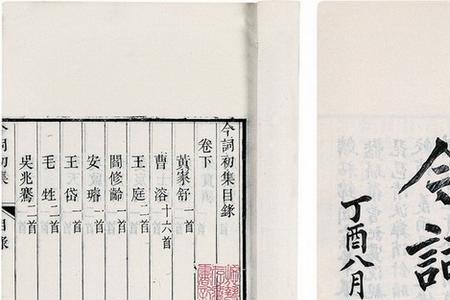 今詞初集目錄
卷下
黃家舒一首
曹溶十六首
王庭二首
閻修齡一首
安璿一首
王岱一首
毛甡二首
吳兆騫一首
今詞初集
目錄
今詞
丁酉八月